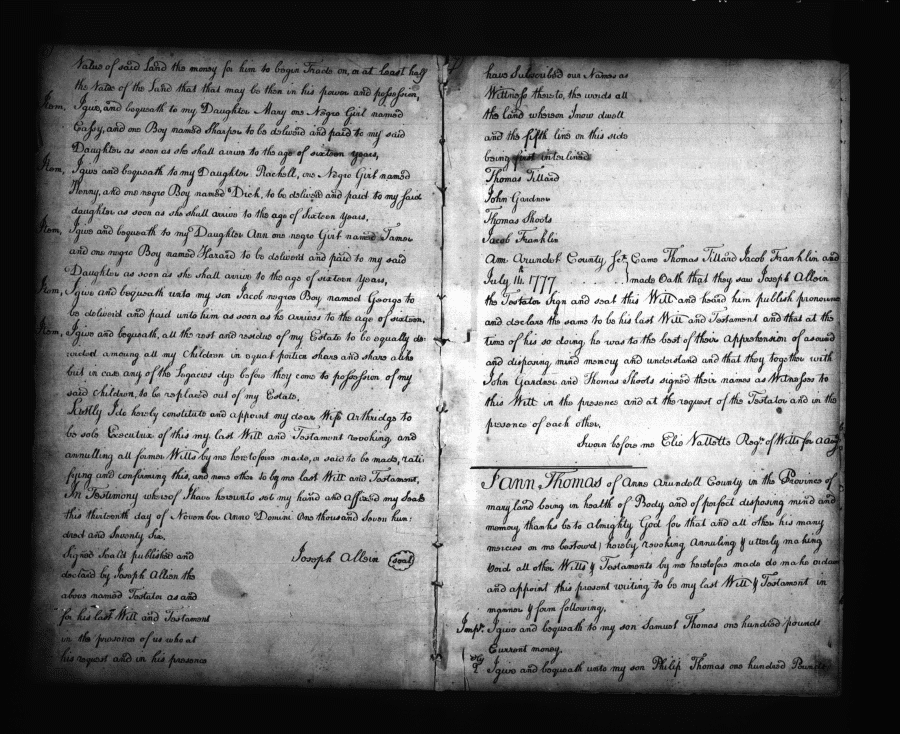 Value of said Land the money for him to begin Trade on, or at Least half
the Value of the Land that that may be then in his power and possession,
Item, I give, and bequeath to my Daughter Mary one Negro Girl named
Cassy, and one Boy named Sharper to be deliverd and paid to my said
Daughter as soon as she shall arrive to the age of sixteen years,
Item, I give and bequeath to my Daughter Rachell, one Negro Girl named
Henny, and one negro Boy named Dick, to be deliverd and paid to my said
daughter as soon as she shall arrive to the age of Sixteen years,
Item, I give and bequeath to my Daughter Ann one negro Girl named Tamer
and one negro Boy named Hazard to be deliverd and paid to my said
Daughter as soon as she shall arrive to the age of sixteen years,
Item, I give and bequeath unto my son Jacob negroe Boy named George to
be deliverd and paid unto him as soon as he arrives to the age of sixteen.
Item, I give and bequeath, all the rest and residue of my Estate to be equally de-
vided among all my Children in equal portion share and share alike
but in case any of the Legacies dye before they come to possession of my
said children, to be replaced out of my Estate,
Lastly I do hereby constitute and appoint my dear Wife Arthridge to
be sole Executrix of this my last Will and Testament revoking, and
annulling all former Wills by me heretofore made, or said to be made, rati-
fying and confirming this, and none other to be my last Will and Testament,
In Testimony whereof I have hereunto set my hand and Affixed my Seal
this thirteenth day of November Anno Domini One thousand Seven hun-
dred and Seventy Six.
Signed Seald published and
Joseph Allein (seal)
declared by Joseph Allien the
above named Testator as and
for his last Will and Testament
in the presence of us who at
his request and in his presence
have Subscribed our Names as
Wittness thereto, the words all
the land whereon I now dwell
and the fifth line on this side
being first interlined
Thomas Tillard
John Gardner
Thomas Shoots
Jacob Franklin
Ann Arundel County Sct. Came Thomas Tillard Jacob Franklin and
July 14th. 1777 . . . . . . made Oath that they saw Joseph Allein
the Testator Sign and seal this Will and heard him publish pronounce
and declare the same to be his last Will and Testament and that at the
time of his so doing he was to the best of their Apprehension of a sound
and disposing mind memory and understand and that they together with
John Gardner and Thomas Shoots signed their names as Witnesses to
this Will in the presence and at the request of the Testator and in the
presence of each other,
Sworn before me Elie Vallette Regr. of Wills for A Aruy
I Ann Thomas of Anne Arundell County in the Province of
maryland being in health of Body and of perfect disposing mind and
memory thanks be to Almighty God for that and all other his many
mercies on me bestowd) hereby revoking Annuling & utterly making
Void all other Wills & Testaments by me heretofore made do make ordain
and appoint this present writing to be my last Will & Testament in
manner & form following,
Imps. I give and bequeath to my son Samuel Thomas one hundred pounds
Current money.
I give and bequeath unto my son Philip Thomas one hundred Pounds